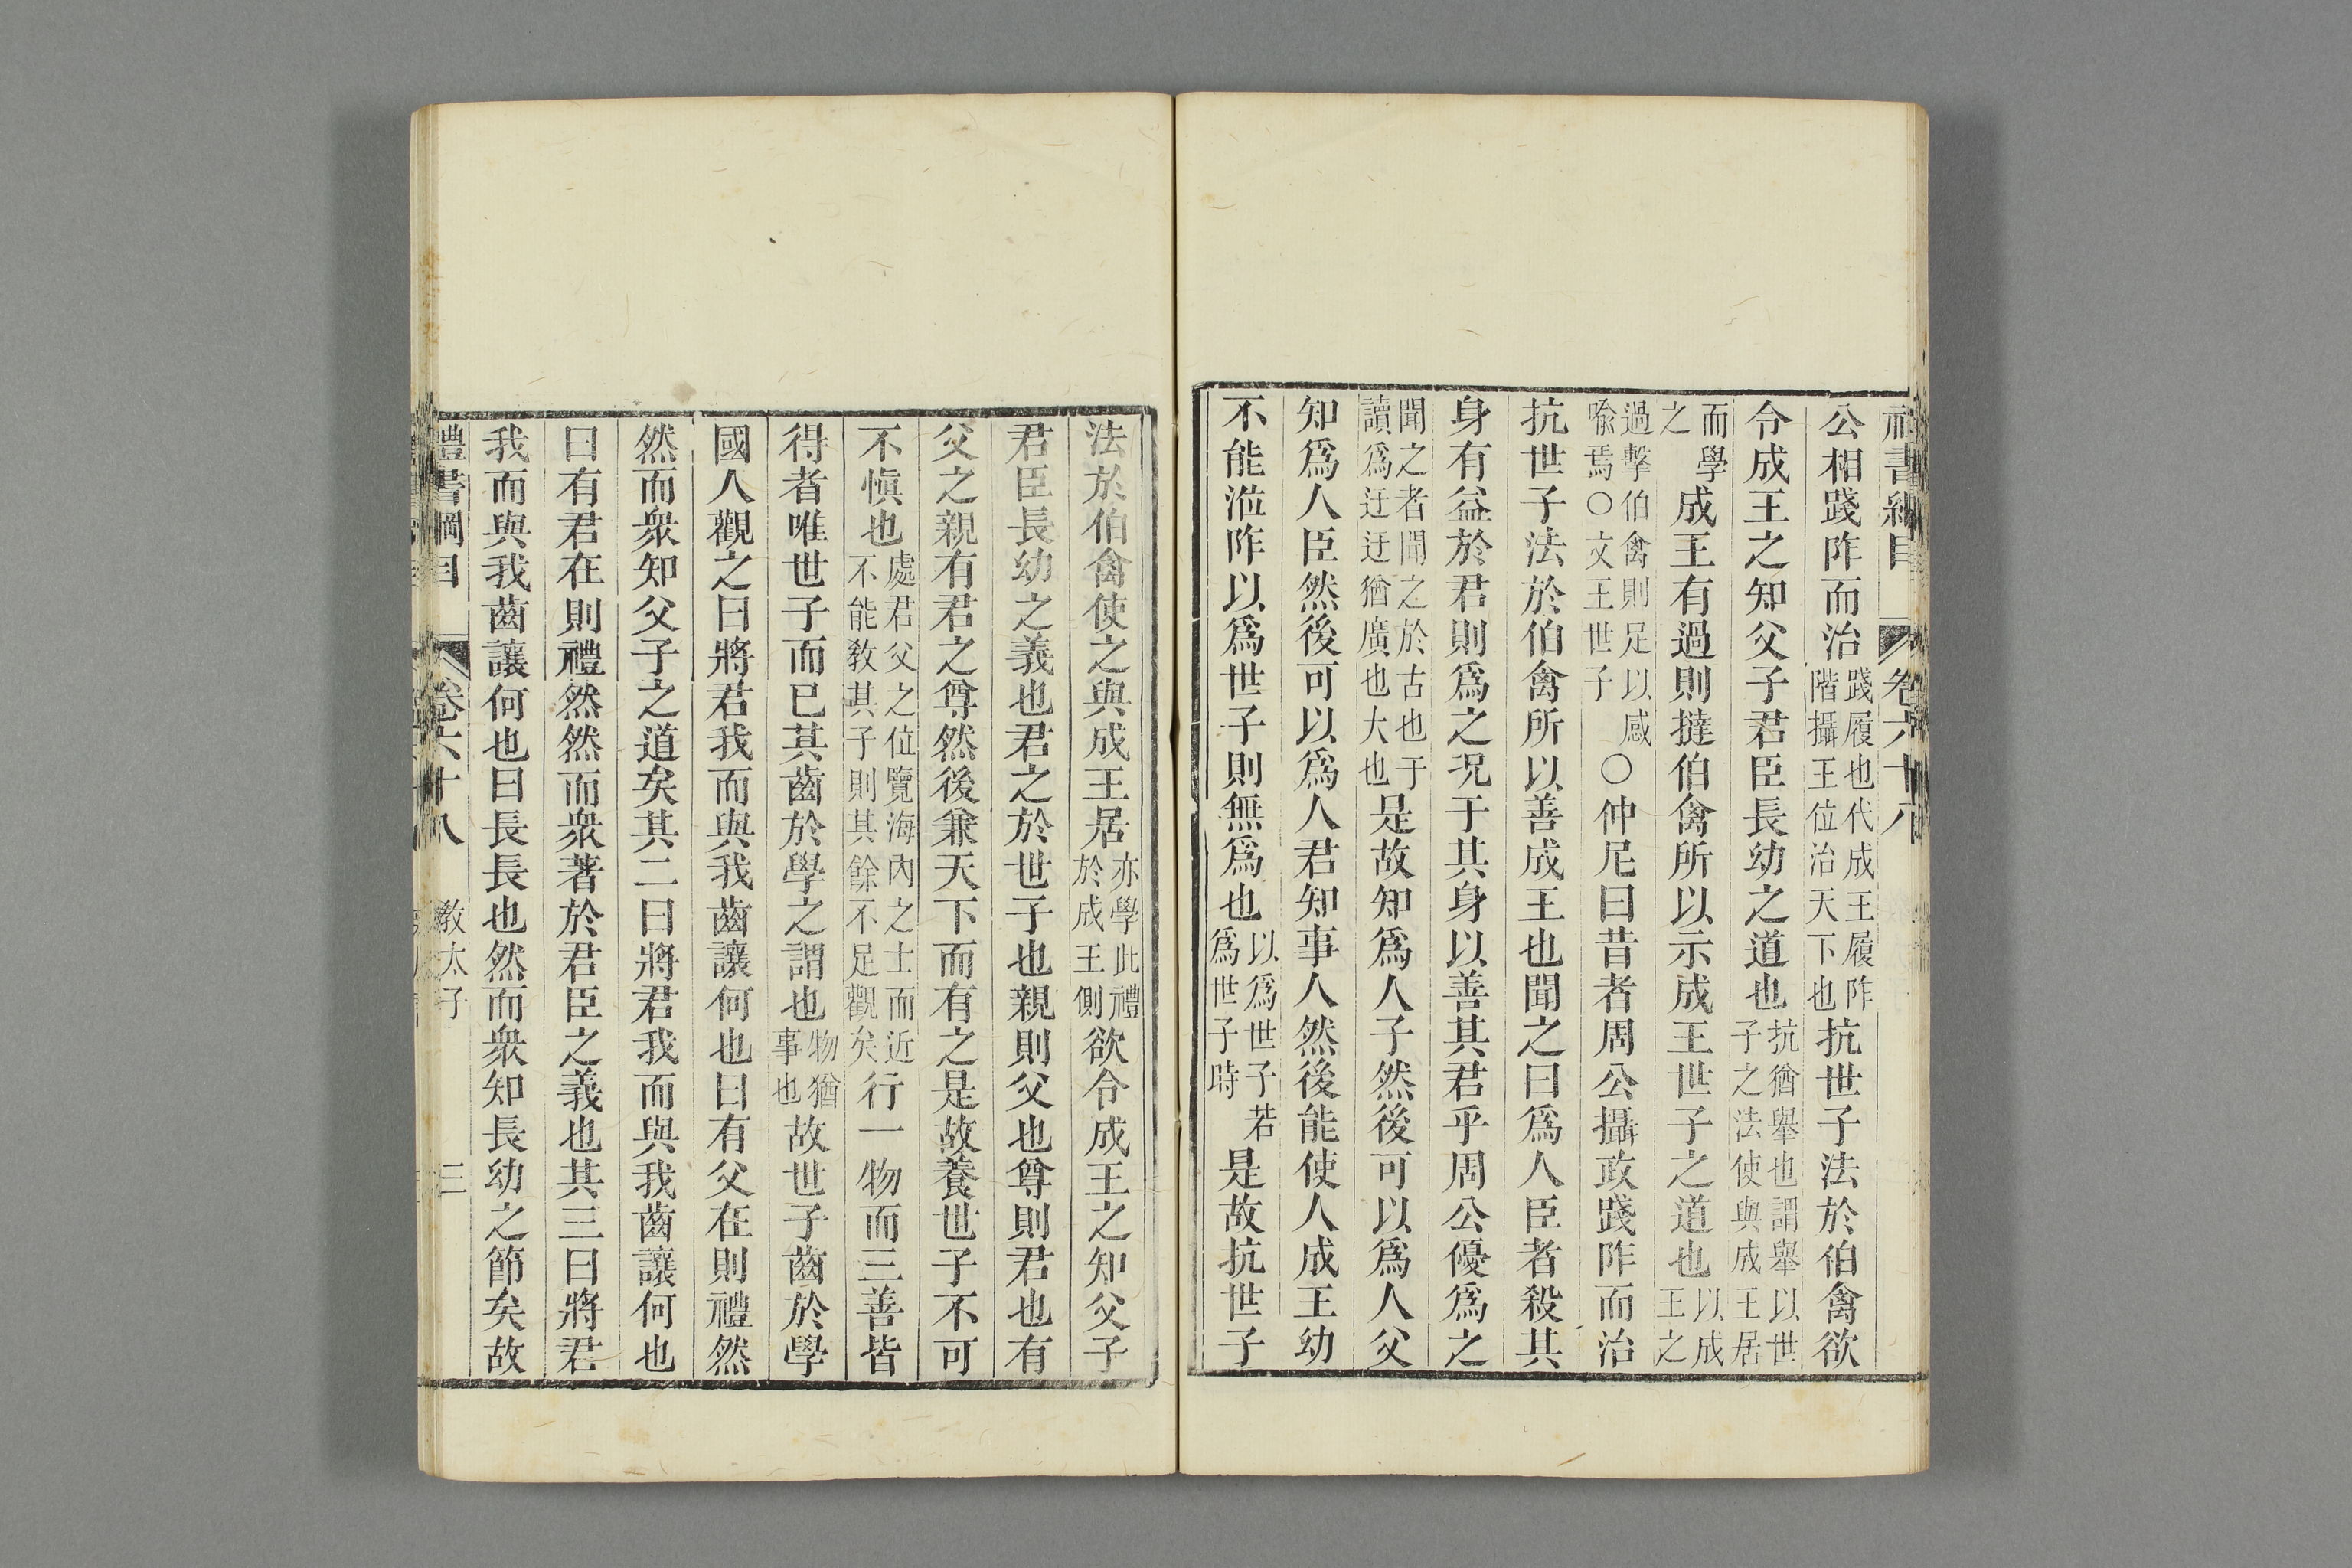 禮書綱目　卷六十八
公相踐阼而治踐履也代成王履阼階攝王位治天下也抗世子法於伯禽欲
令成王之知父子君臣長幼之道也抗猶舉也謂舉以世子之法使與成王居
而學之成王有過則撻伯禽所以示成王世子之道也以成王之
過擊伯禽則足以感喻焉○文王世子○仲尼曰昔者周公攝政踐阼而治
抗世子法於伯禽所以善成王也聞之曰爲人臣者殺其
身有益於君則爲之况于其身以善其君乎周公優爲之
聞之者聞之於古也于讀爲迂迂猶廣也大也是故知爲人子然後可以爲人父
知爲人臣然後可以爲人君知事人然後能使人成王幼
不能涖阼以爲世子則無爲也以爲世子若爲世子時是故抗世子
法於伯禽使之與成王居亦學此禮於成王側欲令成王之知父子
君臣長幼之義也君之於世子也親則父也尊則君也有
父之親有君之尊然後兼天下而有之是故養世子不可
不慎也處君父之位覽海內之士而近不能教其子則其餘不足觀矣行一物而三善皆
得者唯世子而已其齒於學之謂也物猶事也故世子齒於學
國人觀之曰將君我而與我齒讓何也曰有父在則禮然
然而衆知父子之道矣其二曰將君我而與我齒讓何也
曰有君在則禮然然而衆著於君臣之義也其三曰將君
我而與我齒讓何也曰長長也然而衆知長幼之節矣故
禮書綱目　卷六十八　教太子　三